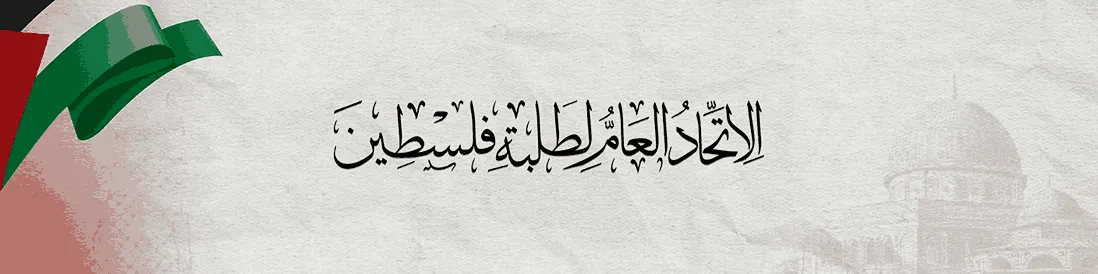 الِاتِّحَادُ العَامُّ لِطَلَبَةِ فِلَسْطِينَ